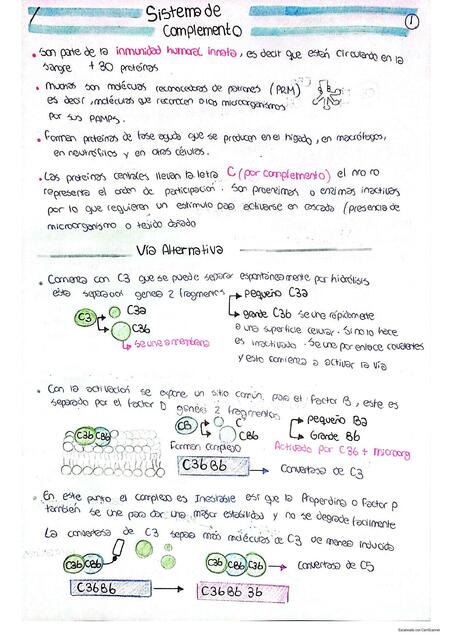 Sistema de
Complemento
1
• Son parte de la inmunidad humoral innata, es decir que están circulando en la
sangre + 30 proteínas
• Muchas son moléculas reconocedoras de patrones (PRM)
es decir, moléculas que reconocen a los microorganismos
por sus PAMPs.
• Forman proteínas de fase aguda que se producen en el hígado, en macrófagos,
en neutrófilos y en otras células.
• Las proteínas centrales llevan la letra C (por complemento) el no ro
representa el orden de participación. Son proenzimas o enzimas inactivas
por lo que requieren un estímulo para activarse en cascada (presencia de
microorganismo o tejido dañado
Vía Alternativa
• Comienza con C3 que se puede separar espontáneamente por hidrólisis
esta separación genera 2 fragmentos
pequeño C3a
grande C3b se une rápidamente
a una superficie celular. Si no lo hace
es inactivado. Se una por enlace covalentes
y esto comienza a activar la vía
C3
C3a
C3b
se une a membrana
• Con la activación se expone un sitio común para el factor B, este es
separado por el factor D genera 2 fragmentos
pequeño Ba
Grande Bb
Activado por C3b + microorg
C3b
CBb
CB
C
CBb
Forman complejo
C3bBb
Convertasa de C3
• En este punto el complejo es Inestable así que la Properdina o Factor P
también se une para dar una mayor estabilidad y no se degrade facilmente
La convertasa de C3 separa más moléculas de C3 de manera inducida
C3b
CBb
C3b
CBb
C3b
convertasa de C5
C3bBb
C3bBb 3b
Escaneado con CamScanner